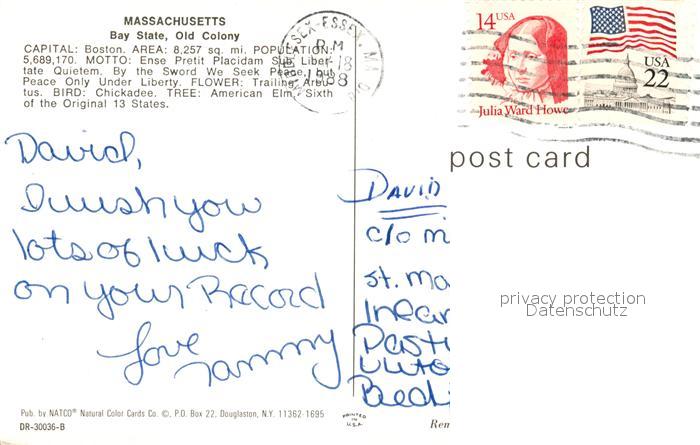 MASSACHUSETTS
Bay State, Old Colony
CAPITAL: Boston. AREA: 8,257 sq. mi. POPULATION:
5,689,170. MOTTO: Ense Pretit Placidam Sub Liber-
tate Quietem. By the Sword We Seek Peace, but
Peace Only Under Liberty. FLOWER: Trailing Arbu-
tus. BIRD: Chickadee. TREE: American Elm. Sixth
of the Original 13 States.
ESSEX-ESSEX, MA
PM
18
14 USA
Julia Ward Howe
USA
22
post card
David,
I wish you
lots of luck
on your Record
Love
Tammy
DAVID
c/o m
st. ma
Past
privacy protection
Datenschutz
Pub. by NATCO® Natural Color Cards Co. ©, P.O. Box 22, Douglaston, N.Y. 11362-1695
DR-30036-B
PRINTED IN U.S.A.
Ren